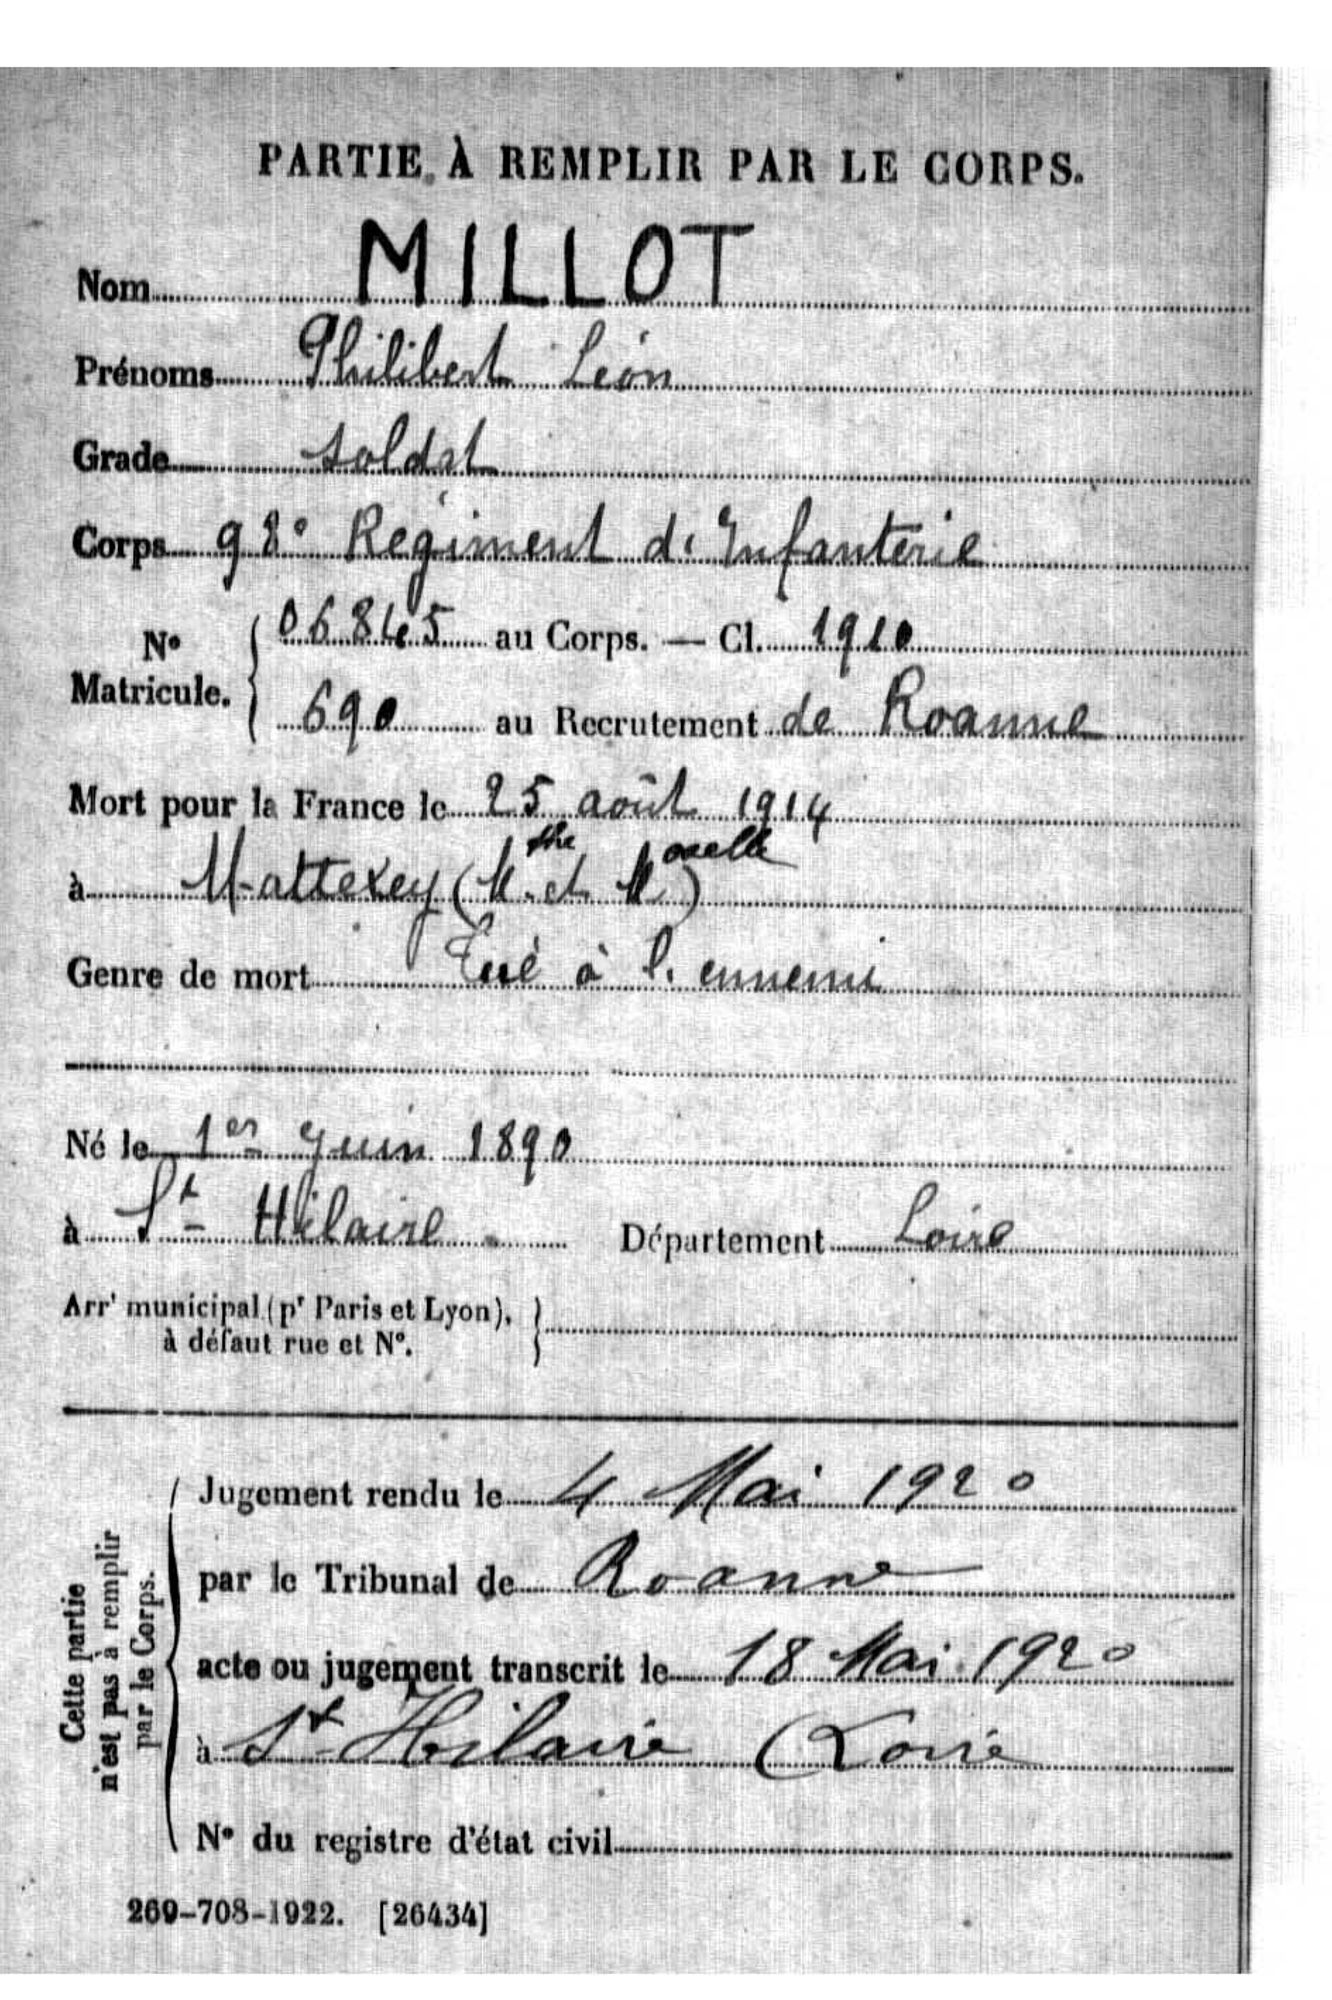 PARTIE À REMPLIR PAR LE CORPS.
Nom MILLOT
Prénoms Philibert Léon
Grade soldat
Corps 98e Régiment d'Infanterie
No Matricule. { 06845 au Corps. — Cl. 1910
690 au Recrutement de Roanne
Mort pour la France le 25 août 1914
à Mattexey (Mthe et Moselle)
Genre de mort Tué à l'ennemi
Né le 1er Juin 1890
à St Hilaire Département Loire
Arrt municipal (pr Paris et Lyon), }
à défaut rue et No.
Cette partie
n'est pas à remplir
par le Corps.
Jugement rendu le 4 Mai 1920
par le Tribunal de Roanne
acte ou jugement transcrit le 18 Mai 1920
à St Hilaire (Loire
No du registre d'état civil
269-708-1922. [26434]